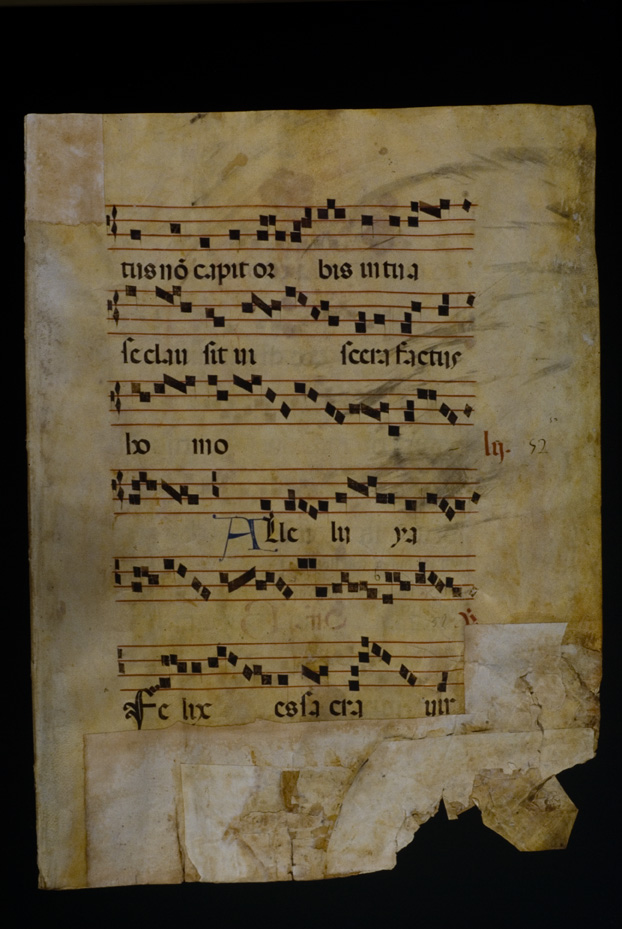 tus nō capit or bis in tua
se clau sit in scera factus
ho mo
lij. 52
Alle lu ya
Fe lix es sa cra uir